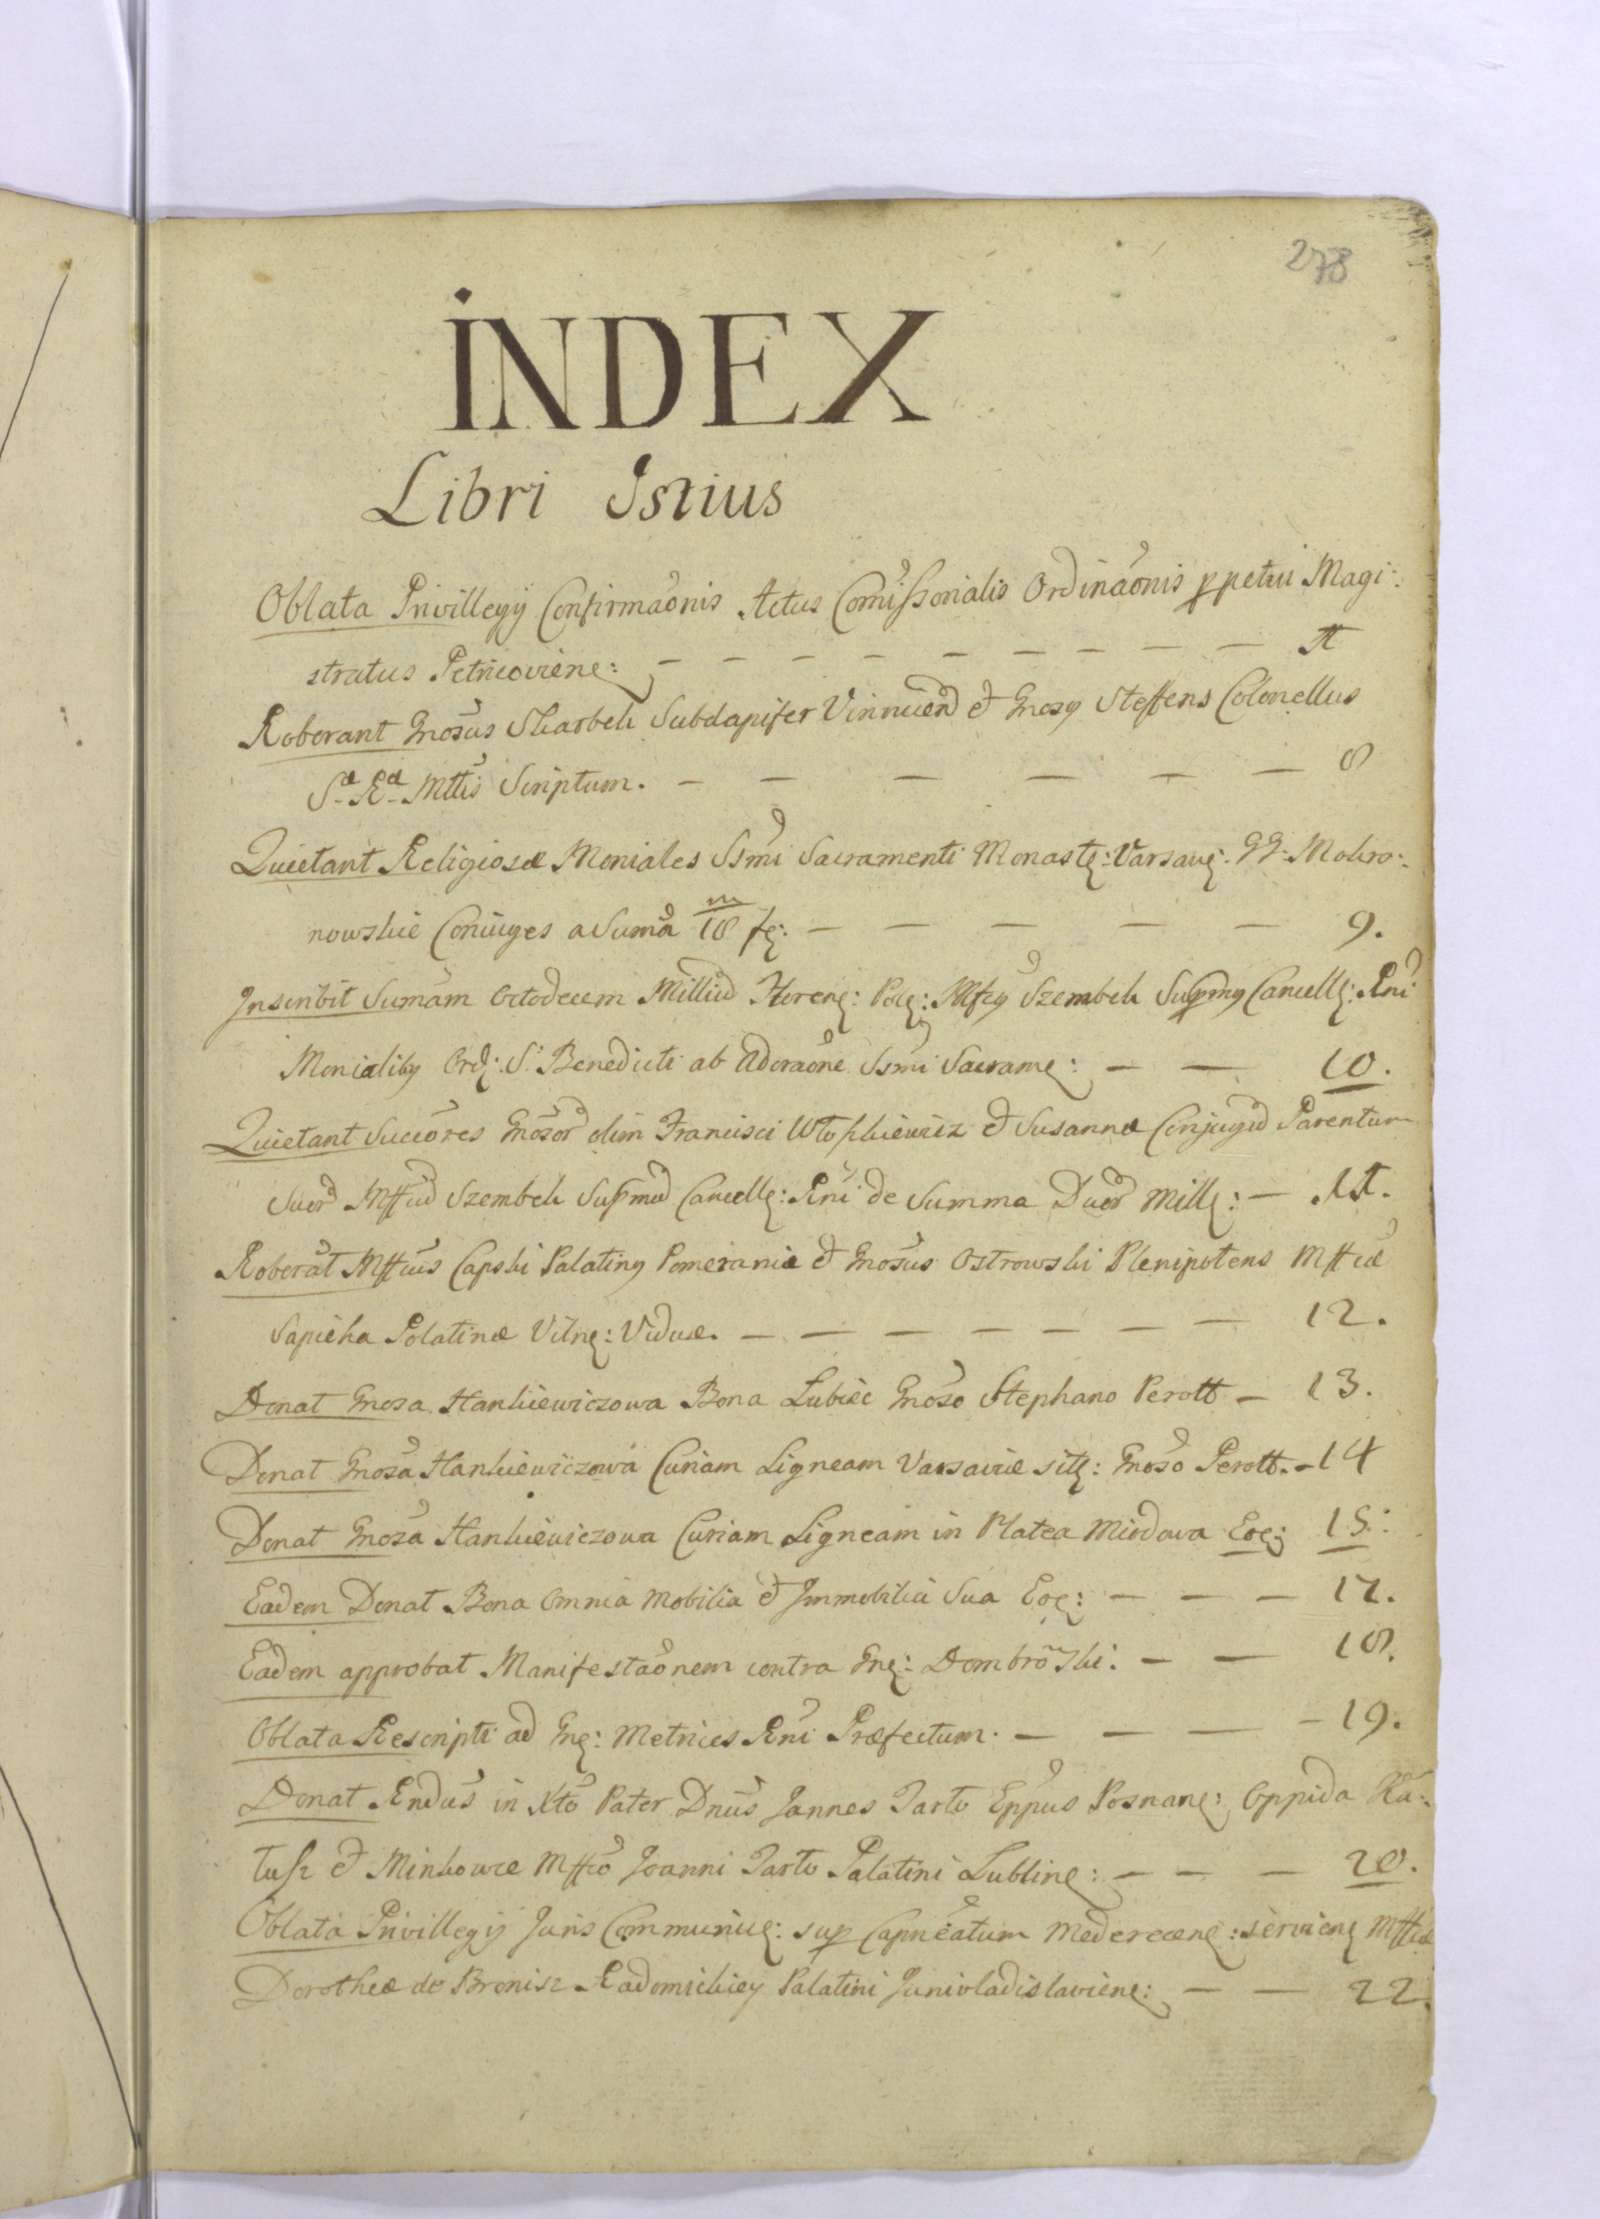 278
INDEX
Libri Istius
Oblata Privillegij Confirmaõnis Actus Comissorialis Ordinaõnis perpetui Magi:
stratus Petricoviene: — — — — — — — — — 1
Roborant Gnosus Skarbek Subdapifer Vinnicen et Gnosy Steffens Colonellus
Sae Rae Mttis Scriptum. — — — — — — 8
Quietant Religiosæ Moniales Ssmi Sacramenti Monaste: Varsave: GG. Mokro:
nowskie Coniuges a Suma 18 m fe: — — — — — 9.
Inscribit Sumam Octodecem Milliu Florene: Pole: Mfcy Szembek Supmy Cancelle: Rni
Monialiby Ord: S. Benedicti ab Adoraõne Ssmi Sacrame: — — 10.
Quietant Succores Gnosor olim Francisci et Susannæ Conjugu Parentum
Suor Mffcu Szembek Supmu Cancelle: Rni de Summa Duor Mille: — 11.
Roborat Mffcus Capski Palatiny Pomeraniæ et Gnosus Ostrowski Plenipotens Mffcæ
Sapieha Palatinæ Vilne: Viduæ. — — — — — — — 12.
Donat Gnosa Hankiewiczowa Bona Lubiec Gnoso Stephano Perott — 13.
Donat Gnosa Hankiewiczowa Curiam Ligneam Varsaviæ site: Gnoso Perott. — 14
Donat Gnosa Hankiewiczowa Curiam Ligneam in Platea Miodowa Eoe: 15:
Eadem Donat Bona Omnia Mobilia et Immobilia Sua Eoe: — — — 17.
Eadem approbat Manifestaõnem contra Gne: Dombroski. — — 18.
Oblata Rescripti ad Gne: Metrices Rni Præfectum. — — — — 19.
Donat Rndus in Xto Pater Dnus Joannes Tarło Eppus Posnane: Oppida Ka:
łusz et Minkowce Mffco Joanni Tarło Palatini Lubline: — — — 20.
Oblata Privillegij Juris Communice: sup Capneatum Medereceene: serviene Mffcæ
Dorotheæ de Bronisz Radomickiey Palatini Junivladislaviene: — — 22.